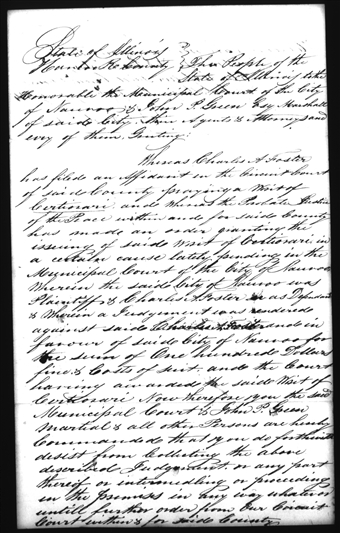 State of Illinois
Hancock County } The People of the
State of Illinois to the
Honorable the Municipal Court of the City
of Nauvoo & John P. Green Esq Marshall
of said City their Agents & Attorneys and
evry of them, Greeting:
Whereas Charles A Foster
has filed an Affidavit in the Circuit Court
of said County praying a Writ of
Certiorari and whereas the Probate Justice
of the Peace within and for said County
has made an order granting the
issuing of said writ of Certiorari in
a certain cause lately pending in the
Municipal Court of the City of Nauvoo
Wherein the said City of Nauvoo was
Plaintiff & Charles A Foster was Defendant
& Wherein a Judgement was rendered
against said Charles A Foster and in
favour of said City of Nauvoo for
the sum of One hundred Dollars
fine & Costs of suit. and the Court
having awarded the said Writ of
Certiorari Now therefore you the said
Municipal Court & John P. Green
Martial & all other Persons are hereby
Commanded that you do forthwith
desist from Collecting the above
described Judgment or any part
thereof or intermedling or proceeding
in the premises in any way whatever
untill further order from Our Circuit
Court within & for said County